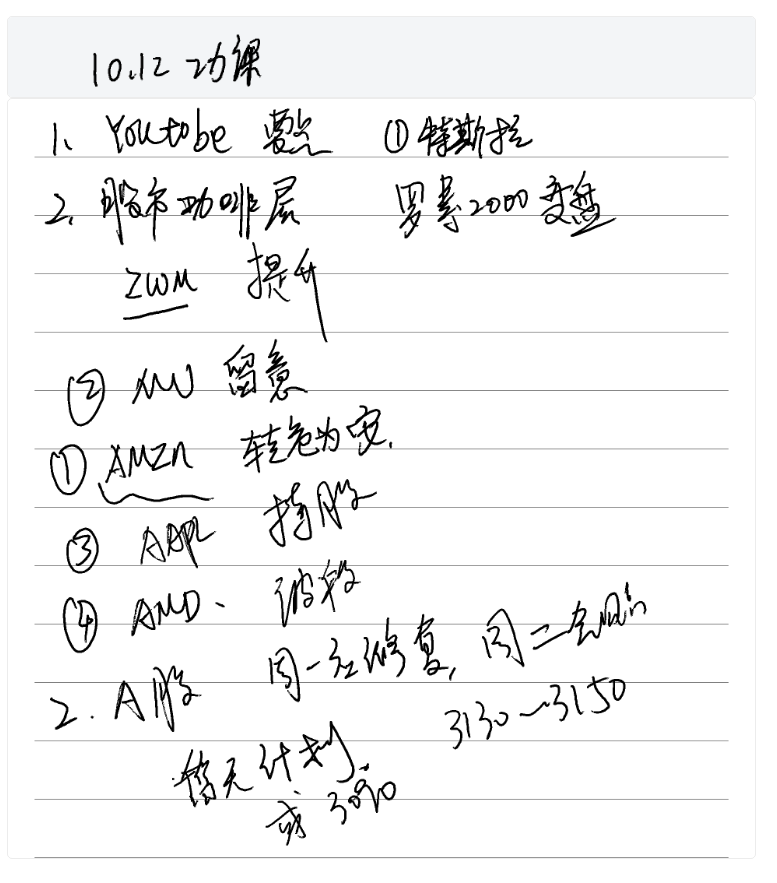 10.12 功课
1、Youtobe 要点 ① 特斯拉
2、股市咖啡屋 罗素2000 变盘
IWM 提升
② MU 留意
① AMZN 转危为安.
③ AAPL 持股
④ AMD、波段
2. A股 周一红修复, 周二
3130~3150
暂无计划.
或 30%